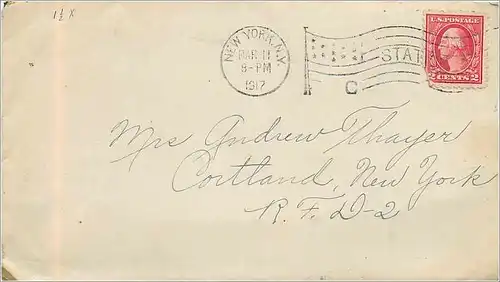 1½ X
NEW YORK, N.Y.
MAR 11
8-PM
1917
STAT
C
U.S. POSTAGE
2 CENTS 2
Mrs Andrew Thayer
Cortland, New York
R. F. D-2